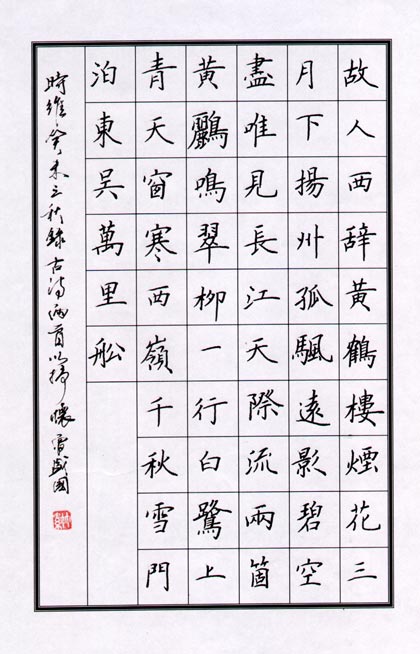 故人西辞黃鶴樓煙花三
月下揚州孤颿遠影碧空
盡唯見長江天際流兩箇
黃鸝鳴翠柳一行白鷺上
青天窗寒西嶺千秋雪門
泊東吳萬里船
時維癸未三秋錄古詩兩首以抒懷盛國